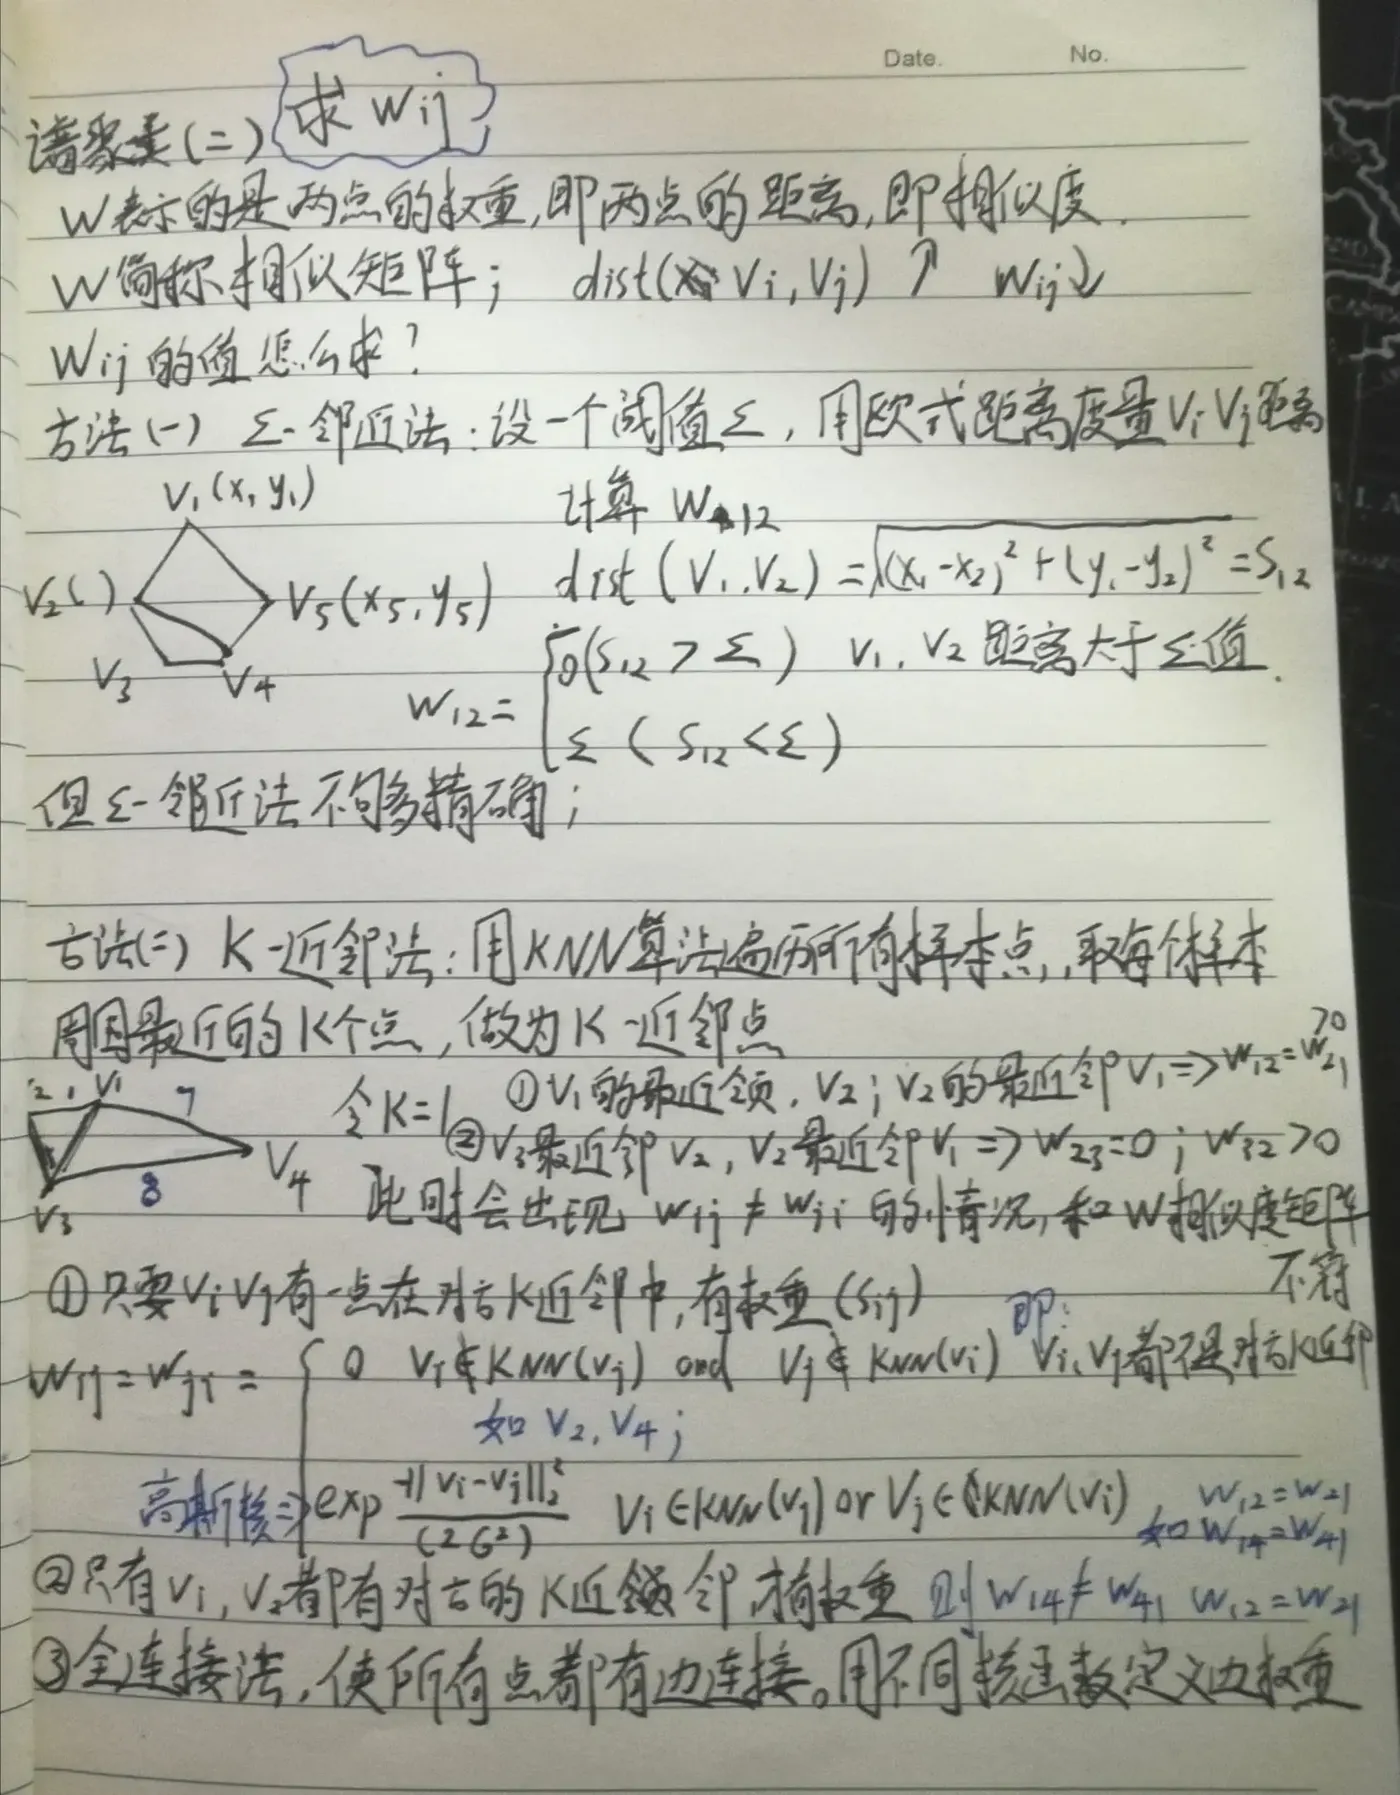 Date. No.
求 Wij
谱聚类(二)
W表示的是两点的权重,即两点的距离,即相似度.
W简称相似矩阵; dist(Vi,Vj) ↑ Wij↓
Wij的值怎么求?
方法(一) Σ-邻近法:设一个阈值Σ,用欧式距离度量Vi Vj距离
V1(x, y1)
计算 W12
V2( ) V5(x5,y5) dist(V1.V2)=√(x1-x2)²+(y1-y2)²=S12
V3 V4
W12= { 0(S12>Σ) V1.V2距离大于Σ值.
Σ (S12<Σ)
但Σ-邻近法不够多精确;
方法(二) K-近邻法:用KNN算法遍历所有样本点,取每个样本
周围最近的K个点,做为K-近邻点
V1 7 8 V3 V4
令K=1 ①V1的最近领.V2;V2的最近邻V1=>W12=W21>0
②V3最近邻V2,V2最近邻V1=>W23=0;W32>0
此时会出现 Wij≠Wji的情况,和W相似度矩阵
不符
①只要Vi Vj有一点在对方K近邻中,有权重(Sij)
Wij=Wji= { 0 Vi∉KNN(Vj) and Vj∉KNN(Vi) 即:Vi,Vj都不是对方K近邻
如V2,V4;
高斯核=> exp -||Vi-Vj||₂²/(2σ²) Vi∈KNN(Vj) or Vj∈KNN(Vi), 如 W12=W21
W14=W41
②只有Vi,V2都有对方的K近邻,才有权重 则W14≠W41 W12=W21
③全连接法,使所有点都有边连接。用不同核函数定义边权重